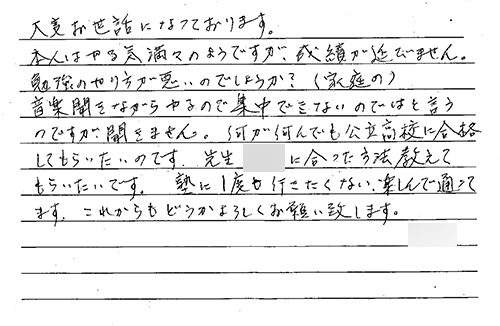 大変お世話になっております。
本人はやる気満々のようですが、成績が延びません。
勉強のやり方が悪いのでしょうか?(家庭の)
音楽聞きながらやるので集中できないのではと言う
のですが聞きません。何が何んでも公立高校に合格
してもらいたいのです。先生 に合った方法教えて
もらいたいです。塾に1度も行きたくない、楽しんで通って
ます。これからもどうかよろしくお願い致します。